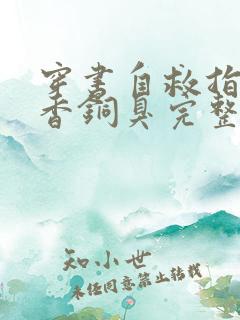 穿書自救指
香銅臭完整
知小世
未经同意禁止转载